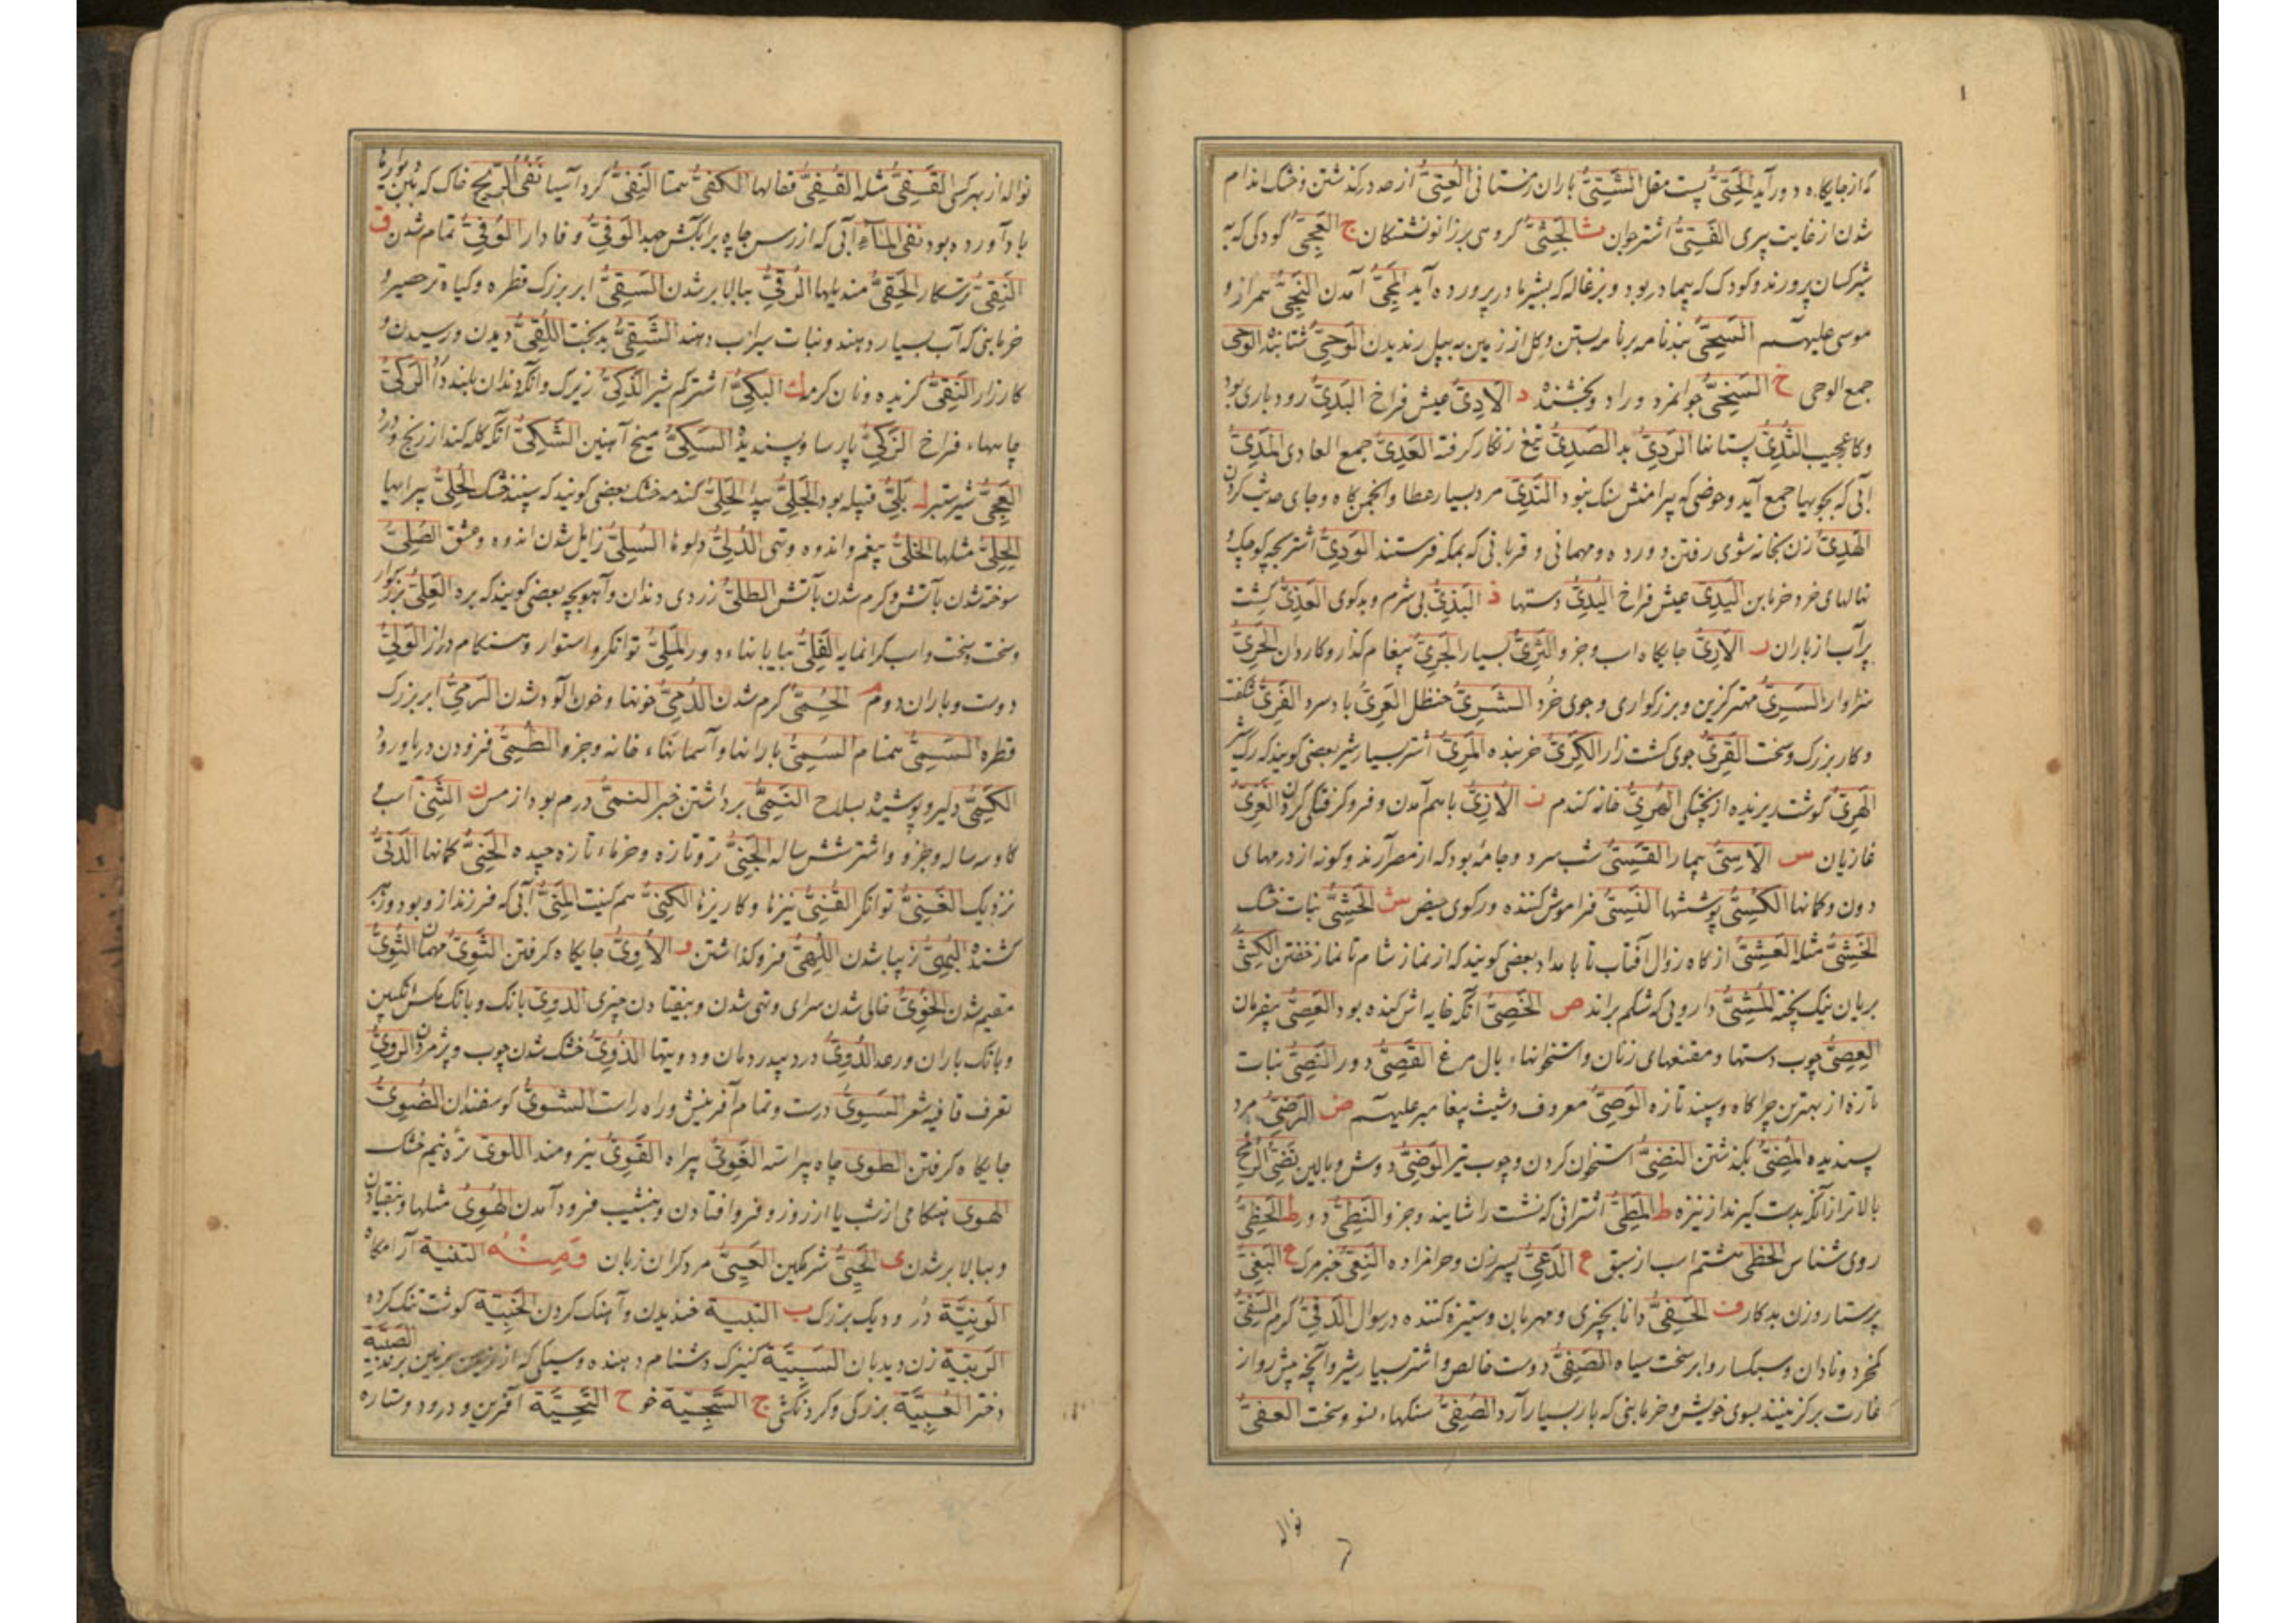 که از جایگاه دور آید الحَتِیُّ پست مقل الشَّتِیُّ باران زمستانی العُتِیُّ از حد درگذشتن و خشک اندام
شدن از غایت پیری الفَتِیُّ اشتر جوان ث الجُثِیُّ گروهی بر زانو نشستگان ج العَجِیُّ کودکی که به
شیر کسان پرورند و کودک که بیمادر بود و بزغاله که بشیر مادر پرورده آید المَجِیُّ آمدن النَجِیُّ همراز و
موسی علیه السَحِیُّ بند نامه بر نامه بستن و گل از زمین به بیل رندیدن الوَحِیُّ شتابنده الوحی
جمع الوحی خ السَخِیُّ جوانمرد و راد و بخشنده د الاَدِیُّ عیش فراخ البَدِیُّ رودباری بود
و کار عجیب الثُدِیُّ پستانها الرَدِیُّ بد الصَدِیُّ تیغ زنگار گرفته العَدِیُّ جمع العادی المَدِیُّ
آبی که بجویها جمع آید و حوضی که پیرامنش سنگ نبود النَدِیُّ مرد بسیار عطا و انجمن گاه و جای حدیث کردن
الهَدِیُّ زن بخانه شوی رفتن و ورده و مهمانی و قربانی که بمکه فرستند الوَدِیُّ اشتر بچه کوچک و
نهالهای خرد خرمابن الیَدِیُّ عیش فراخ الیُدِیُّ دستها ذ البَذِیُّ بی شرم و بدگوی العَذِیُّ کشت
پرآب از باران ر الاَرِیُّ جایگاه اسب و جزو الثَرِیُّ بسیار الجَرِیُّ پیغام گذار و کاردان الحَرِیُّ
سزاوار السَرِیُّ مهتر گزین و بزرگواری و جوی خُرد الشَرِیُّ حنظل العَرِیُّ باد سرد الفَرِیُّ شگفت
و کار بزرگ و سخت القَرِیُّ جوی کشت زار الکَرِیُّ خربنده المَرِیُّ اشتر بسیار شیر بعضی گویند که رگ شیر
الهَرِیُّ گوشت ریزنده از پختگی الهُرِیُّ خانه گندم ز الاُزِیُّ باهم آمدن و فرو گرفتگی کردن الغَزِیُّ
غازیان س الاَسِیُّ بیمار القَسِیُّ شب سرد و جامهٔ بود که از مصر آرند و گونه از درمهای
دون و کمانها الکُسِیُّ پوششها النَسِیُّ فراموش کننده و رکوی حیض ش الحَشِیُّ نبات خشک
الخَشِیُّ مثله العَشِیُّ از گاه زوال آفتاب تا بامداد بعضی گویند که از نماز شام تا نماز خفتن الکَشِیُّ
بریان نیک پخته المَشِیُّ دارویی که شکم براند ص الخَصِیُّ آنکه خایه اش کنده بود العَصِیُّ بیفرمان
العِصِیُّ چوب دستها و مقنعهای زنان و استخوانهاء بال مرغ القَصِیُّ دور النَصِیُّ نبات
تازه از بهترین چراگاه و سپند تازه الوَصِیُّ معروف و شیث پیغامبر علیه ض الرَضِیُّ مرد
پسندیده المُضِیُّ بگذشتن النَضِیُّ استخوان گردن و چوب تیر الوَضِیُّ دوش و بالین نَضِیُّ الرُمح
بالاتر از آنکه بدست گیرند از نیزه ط المَطِیُّ اشترانی که نشست را شایند و جزو النَطِیُّ دور ظ الحَظِیُّ
روی شناس الحظی هشتم اسب از سبق ع الدَعِیُّ پسر زن و حرامزاده النَعِیُّ خبر مرگ غ البَغِیُّ
پرستار و زن بدکار ف الحَفِیُّ دانا بچیزی و مهربان و ستیزه کننده در سوال الدَفِیُّ گرم السَفِیُّ
کم خرد و نادان و سبکسار و ابر سخت سیاه الصَفِیُّ دوست خالص و اشتر بسیار شیر و آنچه پیش رو از
غارت برگزینند بسوی خویش و خرمابنی که بار بسیار آرد الصُفِیُّ سنگهاء نسو و سخت العفیُّ
نواله
نواله از بهر کسی القَفِیُّ مثله القُفِیُّ قفالها الکَفِیُّ همتا النَفِیُّ گرد آسیا نَفِیُّ الریح خاک که به بن دیوارها
باد آورده بود نفی المَاءِ آبی که از رسن چاه برآبکش جهد الوَفِیُّ وفادار الوُفِیُّ تمام شدن ق
النَقِیُّ پرهیزکار الحُقِیُّ مندیلها الرُقِیُّ ببالا بر شدن السَقِیُّ ابر بزرگ قطره و گیاه تر حصیر و
خرمابنی که آب بسیار دهند و نبات سیراب دهند الشَقِیُّ بدبخت اللُقِیُّ دیدن و رسیدن و
کارزار النَقِیُّ گزیده و نان گرمه ک البَکِیُّ اشتر کم شیر الذَکِیُّ زیرک و آنکه دندان بلند دارد الرَکِیُّ
چاههاء فراخ الزَکِیُّ پارسا و پسندیده السَکِیُّ میخ آهنین الشَکِیُّ آنکه گله کند از رنج و درد
العَجِیُّ شیر ستبر ل بَلِیُّ قبیله بود الجَلِیُّ پیدا الحَلِیُّ گندمه خشک بعضی گویند که سپند خشک الحُلِیُّ پیرایها
الحِلِیُّ مثلها الخَلِیُّ بیغم و اندوه و تهی الدُلِیُّ دلوها السُلِیُّ زایل شدن اندوه و عشق الصُلِیُّ
سوخته شدن بآتش و گرم شدن بآتش الطلیُّ زردی دندان و آهوبچه بعضی گویند که بره العَلِیُّ بزرگوار
و سخت و سخت و اسب گرانمایه الفَلِیُّ بیابانهاء دور المَلِیُّ توانگر و استوار و هنگام دراز الوَلِیُّ
دوست و باران دوم م الحُمِیُّ گرم شدن الدُمِیُّ خونها و خون آلود شدن الرَمِیُّ ابر بزرگ
قطره السَمِیُّ همنام السُمِیُّ بارانها و آسمانهاء خانه و جزو الطُمِیُّ فزودن دریا و رود
الکَمِیُّ دلیر و پوشیده بسلاح النَمِیُّ برداشتن خبر النمیُّ درم بود از مس ن الثَنِیُّ اسب و
گاو سه ساله و جزو و اشتر شش ساله الجَنِیُّ تر و تازه و خرماء تازه چیده الحُنِیُّ کمانها الدَنِیُّ
نزدیک الغَنِیُّ توانگر القُنِیُّ نیزها و کاریزها الکَنِیُّ هم کنیت المَنِیُّ آبی که فرزند از و بود و زهر
کشنده البُهِیُّ زیبا شدن اللُهِیُّ فرو گذاشتن و الاُوِیُّ جایگاه گرفتن الثَوِیُّ مهمان الثُوِیُّ
مقیم شدن الخُوِیُّ خالی شدن سرای و تهی شدن و بیفتادن چیزی الدوِیُّ بانگ و بانگ مگس انگبین
و بانگ باران و رعد الدُوِیُّ درد بیدرمان و دویتها الذُوِیُّ خشک شدن چوب و پژمردن الروِیُّ
نعرف قافیه شعر السَوِیُّ درست و تمام آفرینش و راه راست الشَوِیُّ گوسفندان الضُوِیُّ
جایگاه گرفتن الطوی چاه پیراسته الغَوِیُّ بیراه القَوِیُّ نیرومند اللوی تره نیم خشک
الهوی هنگامی از شب یا از روز و فرو افتادن و بنشیب فرود آمدن الهُوِیُّ مثلها و بیفتادن
و ببالا بر شدن ی الحَیِیُّ شرمگین العَیِیُّ مرد گران زبان وَمِنْهُ التنیة آرامگاه
الوَنِیَّة دُر و دیگ بزرگ ب التبیة خندیدن و آهنگ کردن الخَبِیَّة گوشت تنک کرده
الرَبِیَّة زن دیدبان السَبِیَّة کنیزک و دشنام دهنده و سیلی که از زمین بزمین برند الصَبِیَّة
دختر العُبِیَّة بزرگی و گردنکشی ج السَّجِیَّة خو ح التَّحِیَّة آفرین و درود و ستاره